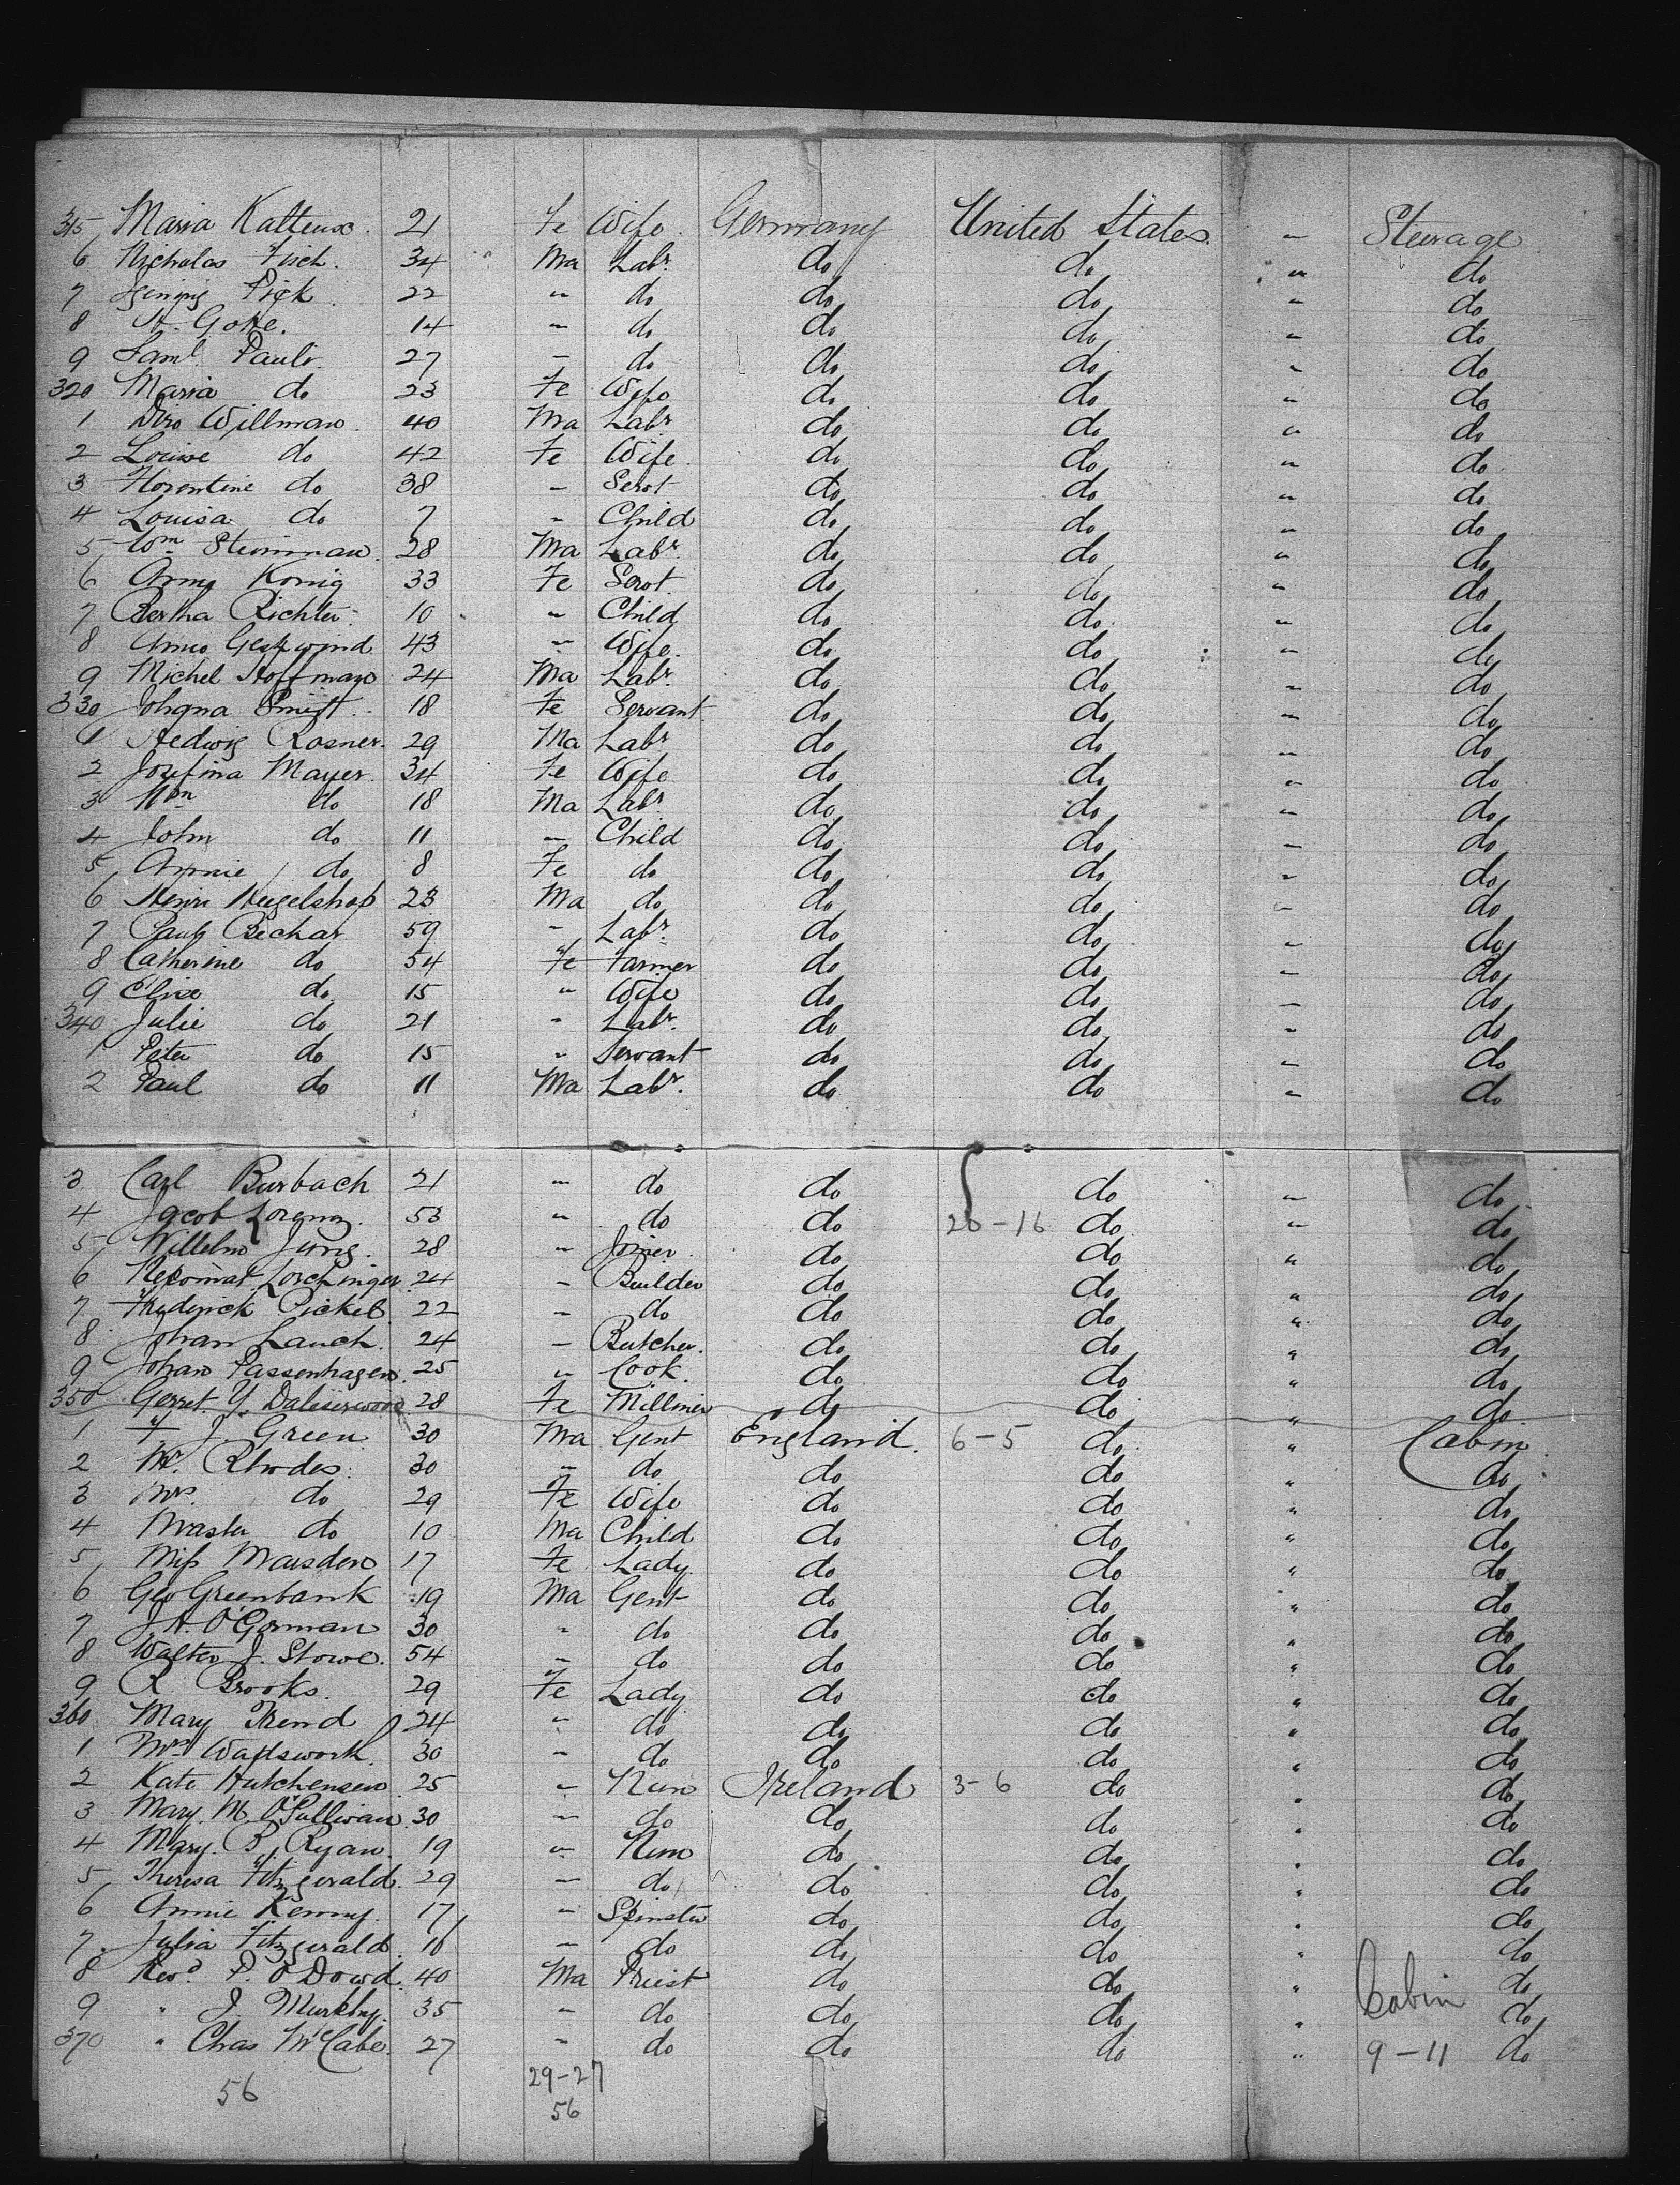 315 Maria Kalteux. 21 Fe Wife. Germany United States. " Steerage
6 Nicholas Fisch. 34 Ma Labr. do do " do
7 Pick 22 " do do do " do
8 14 " do do do " do
9 Saml. Pauli. 27 " do do do " do
320 Maria do 23 Fe Wife do do " do
1 Willman. 40 Ma Labr do do " do
2 Louise do 42 Fe Wife. do do " do
3 Florentine do 38 " Servt do do " do
4 Louisa do 7 " Child do do " do
5 Wm Steinman. 28 Ma Labr. do do " do
6 Anna Konig 33 Fe Servt. do do " do
7 Bertha Richter 10 " Child do do " do
8 43 " Wife. do do " do
9 Michel Hoffman 24 Ma Labr. do do " do
330 Johana 18 Fe Servant. do do " do
1 Hedwig Rosner. 29 Ma Labr do do " do
2 Josefina Mayer. 34 Fe Wife do do " do
3 Wm do 18 Ma Labr do do " do
4 John do 11 " Child do do " do
5 Annie do 8 Fe do do do " do
6 Henri 23 Ma do do do " do
7 Bechar 59 " Labr. do do " do
8 Catherine do 54 Fe Farmer do do " do
9 Elise do 15 " Wife do do " do
340 Julie do 21 " Labr. do do " do
1 Peter do 15 " Servant do do " do
2 Paul do 11 Ma Labr. do do " do
3 Carl Burbach 21 " do do do " do
4 Jacob Lorenz. 53 " do do 20-16 do " do
5 Willelm Jung. 28 " Joiner. do do " do
6 24 " Builder do do " do
7 Frederick Pickel 22 " do do do " do
8 Johan Lauch. 24 " Butcher. do do " do
9 Johan Passenhagen. 25 " Cook. do do " do
350 Gerret Y. 28 Fe Milliner do do " do
1 F J. Green 30 Ma Gent England. 6-5 do " Cabin
2 Mr. Rhodes. 30 " do do do " do
3 Mrs. do 29 Fe Wife do do " do
4 Master do 10 Ma Child do do " do
5 Miss Marsden 17 Fe Lady. do do " do
6 Geo Greenbank 19 Ma Gent do do " do
7 J. A. O'Gorman 30 " do do do " do
8 Walter J. Stowe. 54 " do do do " do
9 R. Brooks. 29 Fe Lady do do " do
360 Mary Trend 24 " do do do " do
1 Mrs 30 " do do do " do
2 Kate Hutchenson 25 " Nun Ireland 3-6 do " do
3 Mary. M. O'Sullivan 30 " do do do " do
4 Mary. B. Ryan. 19 " Nun do do " do
5 Theresa Fitzgerald. 29 " do do do " do
6 Annie Kenny. 17 " Spinster do do " do
7 Julia Fitzgerald. " do do do " do
8 Revd. P. O'Dowd. 40 Ma Priest do do " do
9 " J. 35 " do do do " Cabin do
370 " Chas McCabe. 27 " do do do " 9-11 do
56 29-27
56